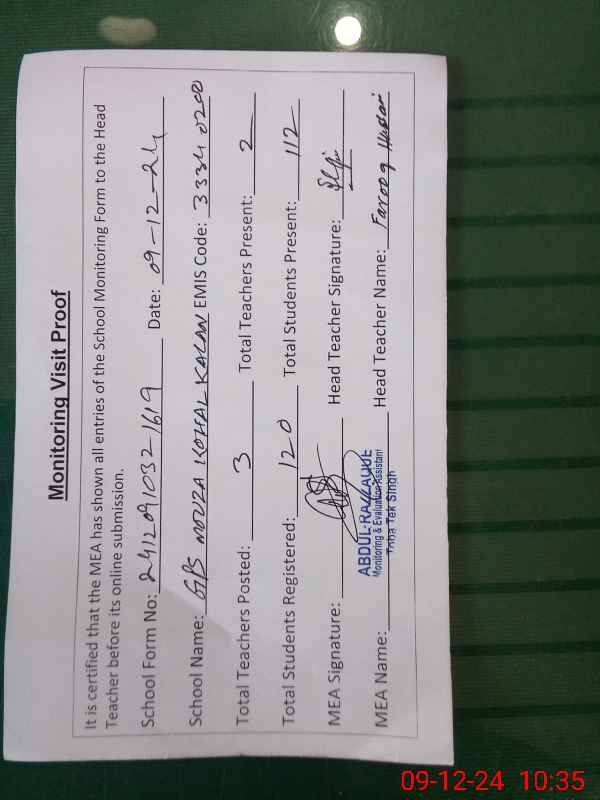 Monitoring Visit Proof
It is certified that the MEA has shown all entries of the School Monitoring Form to the Head
Teacher before its online submission.
School Form No: 2412091032 1619 Date: 09-12-24
School Name: GPS MOUZA KOTHAL KALAN EMIS Code: 3334 0200
Total Teachers Posted: 3 Total Teachers Present: 2
Total Students Registered: 120 Total Students Present: 112
MEA Signature: Head Teacher Signature:
ABDUL-RAZZAQUE
Monitoring & Evaluation Assistant
Toba Tek Singh
MEA Name: Head Teacher Name: Farooq
09-12-24 10:35